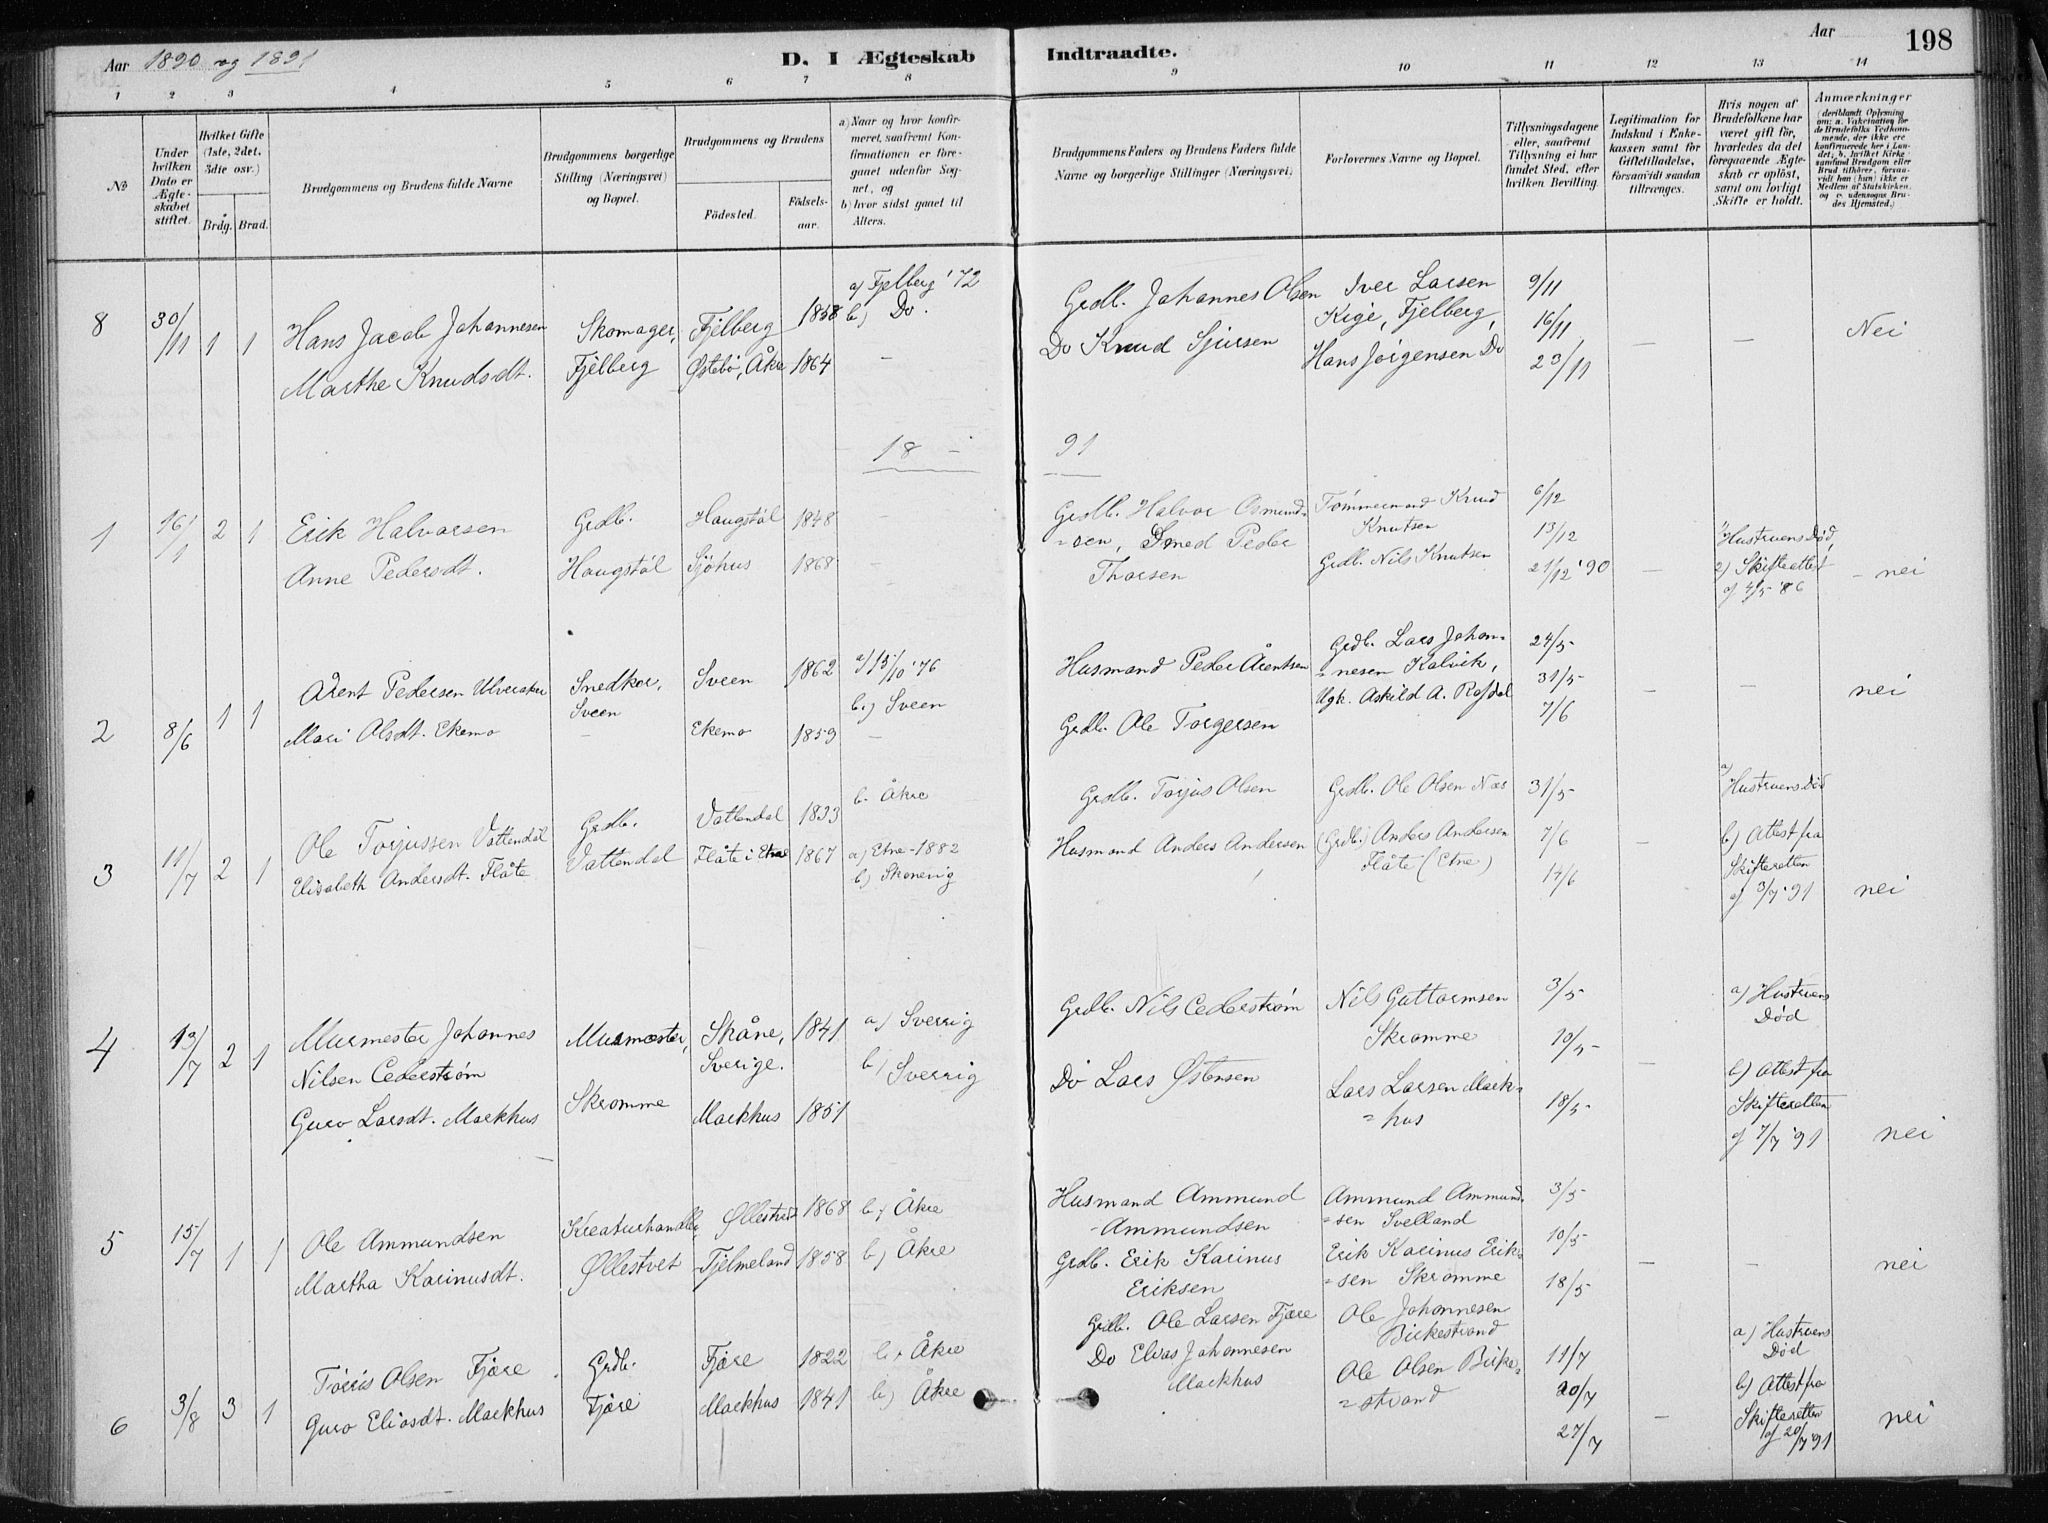 Aar 1890 og 1891
D. I Ægteskab Indtraadte.
Aar
198
1 2 3 4 5 6 7 8 9 10 11 12 13 14
No
Under hvilken Dato er Ægteskabet stiftet.
Hvilket Gifte (1ste, 2det, 3die osv.)
Brdg. Brud.
Brudgommens og Brudens fulde Navne
Brudgommens borgerlige Stilling (Næringsvei) og Bopæl.
Brudgommens og Brudens
Födested.
Födselsaar.
a) Naar og hvor konfirmeret, saafremt Konfirmationen er foregaaet udenfor Sognet, og
b) hvor sidst gaaet til Alters.
Brudgommens Faders og Brudens Faders fulde Navne og borgerlige Stillinger (Næringsvei)
Forlovernes Navne og Bopæl.
Tillysningsdagene eller, saafremt Tillysning ei har fundet Sted, efter hvilken Bevilling.
Legitimation for Indskud i Enkekassen samt for Giftetilladelse, forsaavidt saadan tiltrænges.
Hvis nogen af Brudefolkene har været gift för, hvorledes da det foregaaende Ægteskab er oplöst, samt om lovligt Skifte er holdt.
Anmærkninger (deriblandt Oplysning om: a. Vakcination for de Brudefolks Vedkommende, der ikke ere konfirmerede her i Landet; b. hvilket Kirkesamfund Brudgom eller Brud tilhörer, forsaavidt han (hun) ikke er Medlem af Statskirken, og c. udensogns Brudes Hjemsted.)
8 30/11 1 1
Hans Jacob Johannesen
Marthe Knudsdt.
Skomager,
Fjelberg
Fjelberg 1858
Østebö, Åkre 1864
a) Fjelberg '72
b) Do.
–
Grdb. Johannes Olsen
Do Knud Sjursen
Iver Larsen
Kige, Fjelberg,
Hans Jörgensen Do
9/11
16/11
23/11
–
–
Nei
18 – 91
1 16/1 2 1
Erik Halvorsen
Anne Pedersdt.
Grdb.
Haugstöl
Haugstöl 1848
Sjöhus 1868
–
–
Grdb. Halvor Osmund-
=sen, Smed Peder
Thorsen
Tömmermand Knud
Knutsen
Grdb. Nils Knutsen
6/12
13/12
21/12 '90
–
Hustruens Död,
2) Skifteattest
af 4/5 '86
– nei
2 8/6 1 1
Årent Pedersen Ulveraker
Mari Olsdt. Ekemo
Snedker,
Sveen
–
Sveen 1862
Ekemo 1859
a) 15/10 '76
b.) Sveen
–
Husmand Peder Årentsen
Grdb. Ole Torgersen
Grdb. Lars Johan-
=nesen Kalvik,
Ugk. Askild A. Rafdal
24/5
31/5
7/6
–
–
nei
3 11/7 2 1
Ole Torjussen Vattendal
Elisabeth Andersdt. Flåte
Grdb.
Vattendal
Vattendal 1833
Flåte i Etne 1867
b. Åkre
a) Etne - 1882
b) Skonevig
Grdb. Torjus Olsen
Husmand Anders Andersen
Grdb. Ole Olsen Næs
(Grdb.) Anders Andersen
Flåte (Etne)
31/5
7/6
14/6
–
a) Hustruens Död
b) Attest fra
Skifteretten
af 3/7 '91
nei
4 13/7 2 1
Murmester Johannes
Nilsen Cederstrøm
Guro Larsdt. Markhus
Murmester,
Skromme
Skåne, 1841
Sverige.
Markhus 1851
a) Sverrig
b) Sverrig
Grdb. Nils Cederstrøm
Do Lars Østensen
Nils Guttormsen
Skromme
Lars Larsen Mark-
=hus
3/5
10/5
18/5
–
a) Hustruens
Död
b) Attest fra
Skifteretten
af 7/7 '91
nei
5 15/7 1 1
Ole Ammundsen
Martha Karinusdt.
Kreaturhandler,
Øllestvet
Øllestvet 1868
Fjelmeland 1858
b.) Åkre
b) Åkre
Husmand Ammund
Ammundsen
Grdb. Erik Karinus
Eriksen
Ammund Ammund-
=sen Svelland
Erik Karinus Erik-
=sen Skromme
3/5
10/5
18/5
–
–
nei
6 3/8 3 1
Törris Olsen Fjære
Guro Eliasdt. Markhus
Grdb.
Fjære
Fjære 1822
Markhus 1841
b. Åkre
b) Åkre
Grdb. Ole Larsen Fjære
Do Elias Johannesen
Markhus
Ole Johannesen
Birkestrand
Ole Olsen Birke-
=strand
11/7
20/7
27/7
–
a) Hustruens
Död
b) Attest fra
Skifteretten
af 20/7 '91
nei